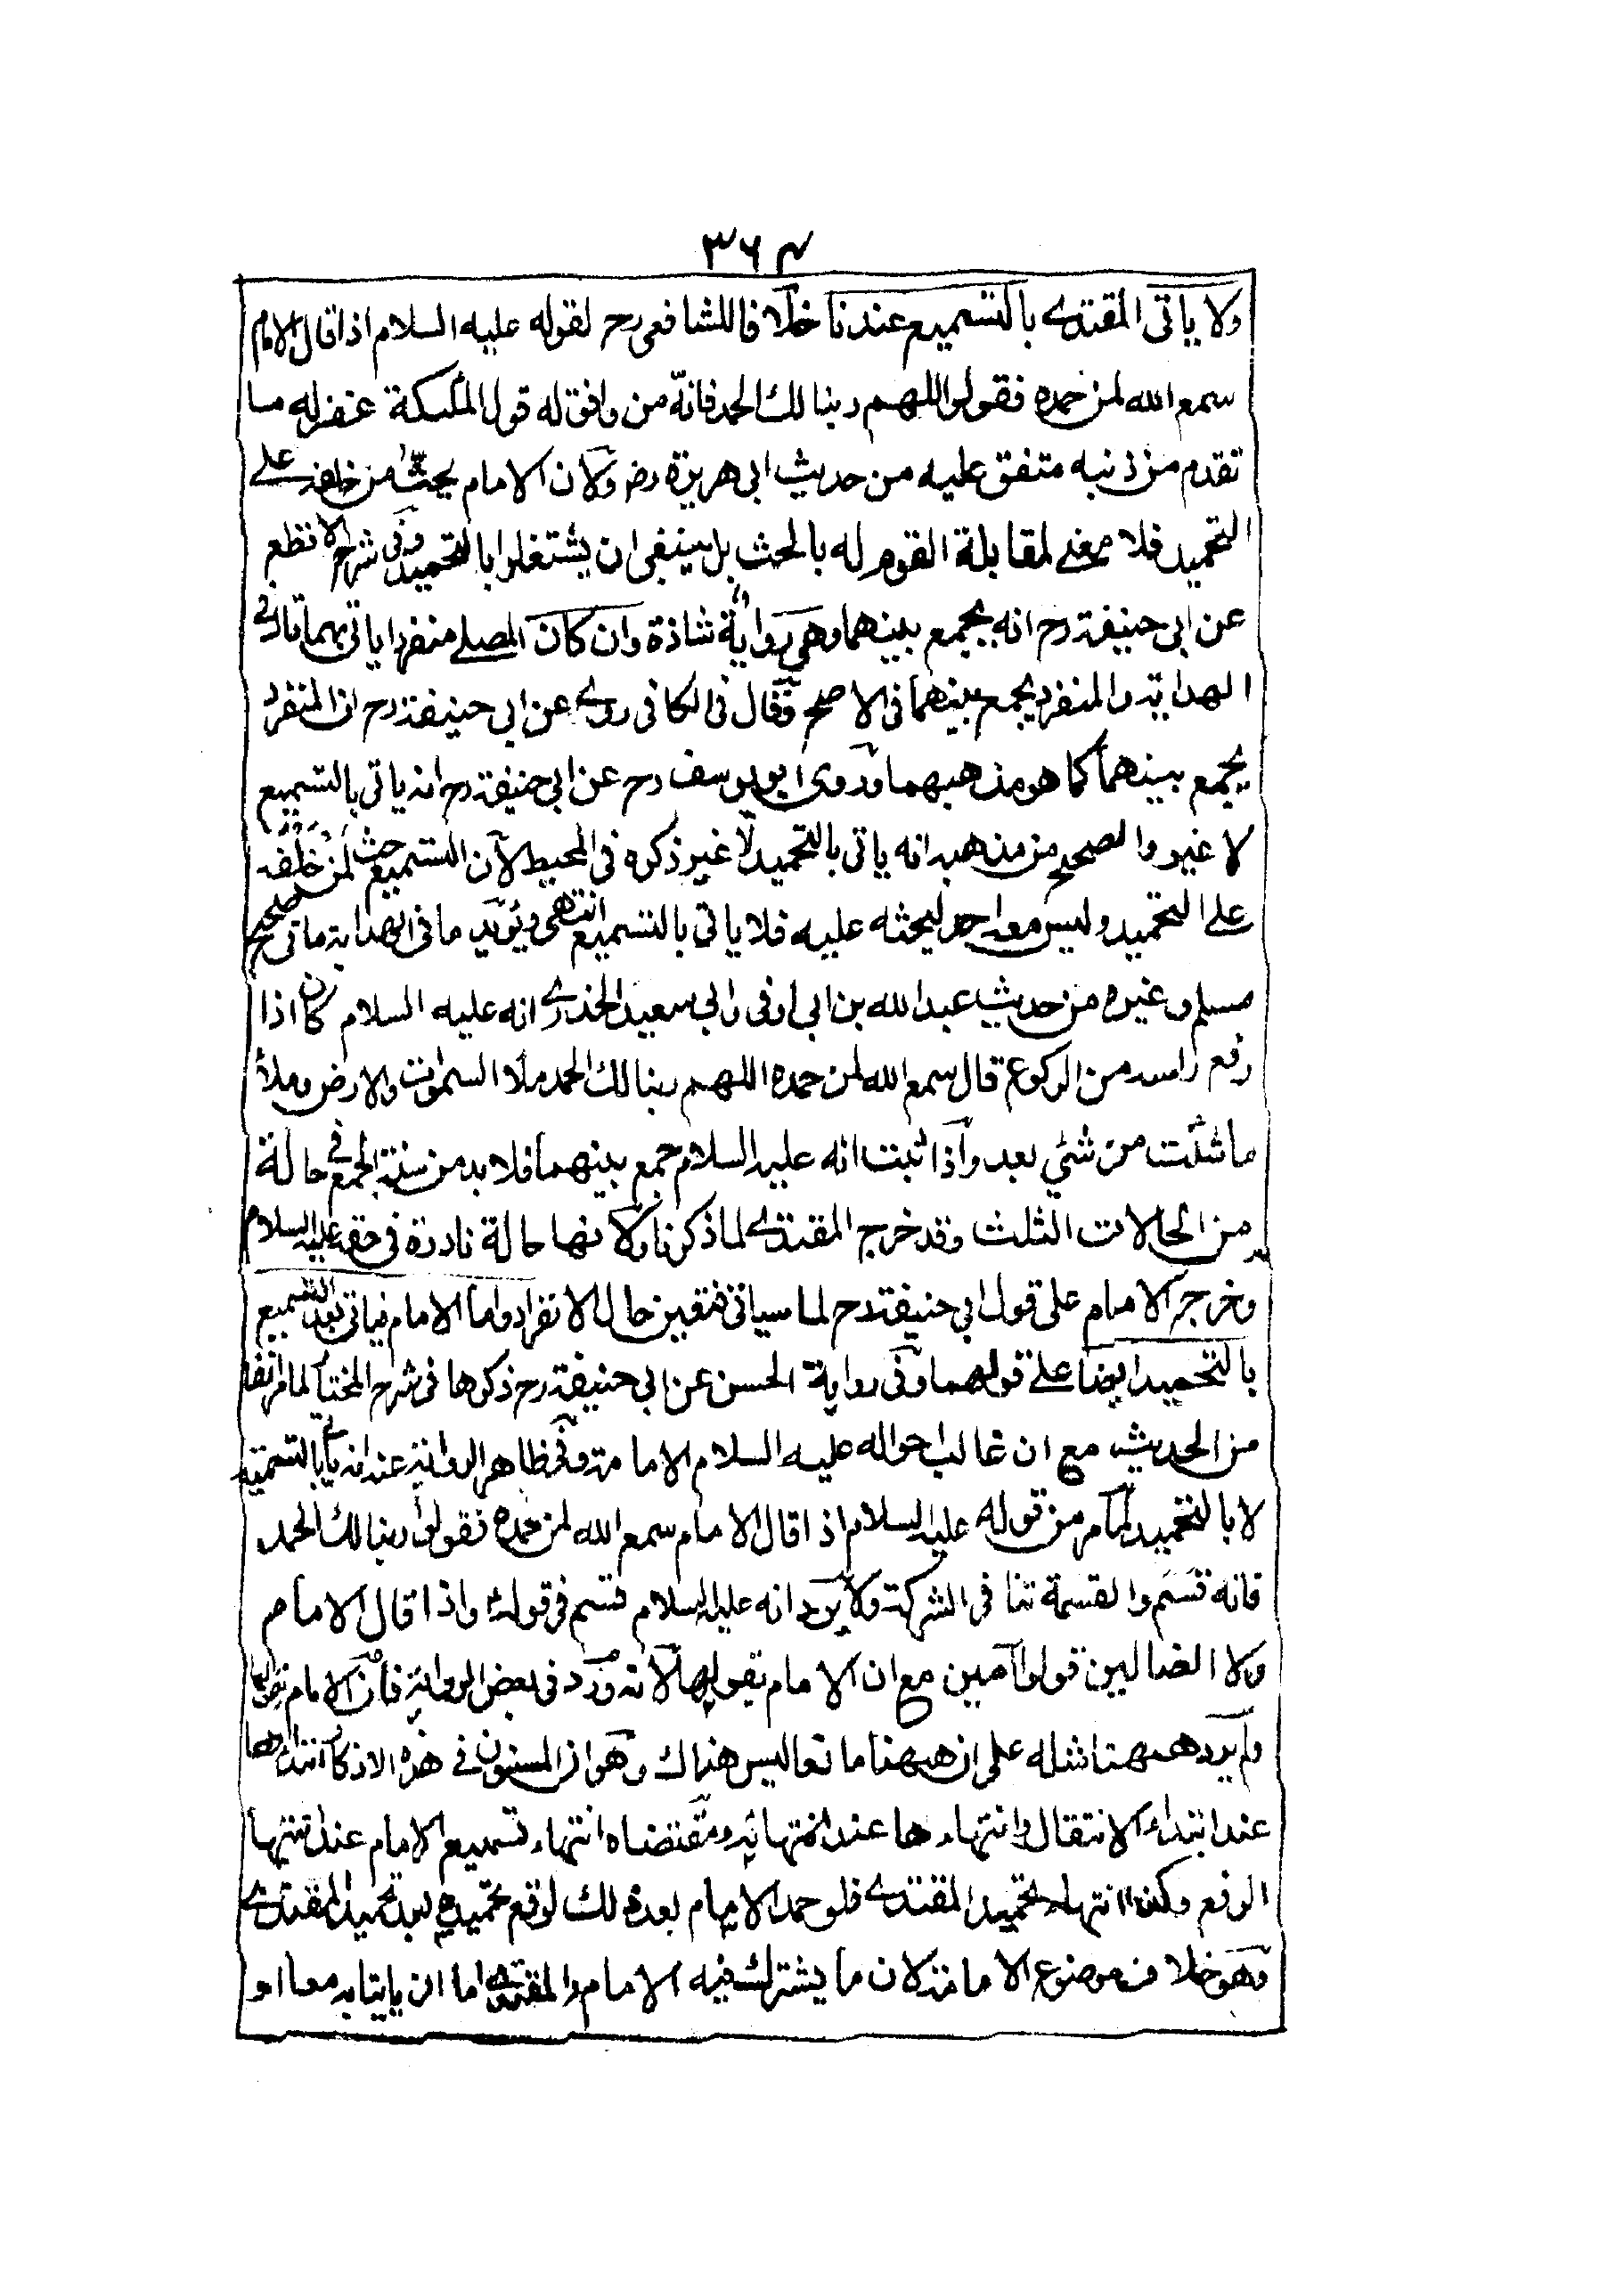 ٣٦٤
ولا ياتى المقتدے بالتسميع عندنا خلافا للشافعى رح لقوله عليه السلام اذا قال الامام
سمع الله لمن حمده فقولوا اللهم ربنا لك الحمد فانه من وافق له قول الملٰئكة غفر له ما
تقدم من ذنبه متفق عليه من حديث ابى هريرة رض ولان الامام يحث من خلفه علے
التحميد فلا معنے لمقابلة القوم له بالحث بل ينبغى ان يشتغلوا بالتحميد وفى شرح الاقطع
عن ابى حنيفة رح انه يجمع بينهما وهى رواية شاذة وان كان المصلے منفردا ياتى بهما قال فى
الهداية والمنفرد يجمع بينهما فى الاصح وقال فى الكافى روے عن ابى حنيفة رح ان المنفرد
يجمع بينهما كما هو مذهبهما وروى ابو يوسف رح عن ابى حنيفة رح انه ياتى بالتسميع
لا غير والصحيح من مذهبه انه ياتى بالتحميد لا غير ذكره فى المحيط لان التسميع حث لمن خلفه
على التحميد وليس معه احد ليحثه عليه فلا ياتى بالتسميع انتهى ويؤيد ما فى الهداية ما فى صحيح
مسلم وغيره من حديث عبد الله بن ابى اوفى وابى سعيد الخدرے انه عليه السلام كان اذا
رفع راسه من الركوع قال سمع الله لمن حمده اللهم ربنا لك الحمد ملأ السموات والارض وملأ
ما شئت من شئ بعد واذا ثبت انه عليه السلام جمع بينهما فلا بد من سنة الجمع فى حالة
من الحالات الثلث وقد خرج المقتدے لما ذكرنا ولانها حالة نادرة فى حقه عليه السلام
وخرج الامام على قول ابى حنيفة رح لما سياتى فتعين حال الانفراد واما الامام فياتى بعد التسميع
بالتحميد ايضا علے قولهما وفى رواية الحسن عن ابى حنيفة رح ذكرها فى شرح المختار لما مر انفا
من الحديث مع ان غالب احواله عليه السلام الامامة وفى ظاهر الرواية عنه انه ياتى بالتسميع
لا بالتحميد لما مر من قوله عليه السلام اذا قال الامام سمع الله لمن حمده فقولوا ربنا لك الحمد
فانه قسم والقسمة تنافى الشركة ولا يرد انه عليه السلام قسم فى قوله واذا قال الامام
ولا الضالين قولوا آمين مع ان الامام يقولها لانه ورد فى بعض الرواية فان الامام يقولها
ولم يرد ههنا مثله على ان ههنا مانعا ليس هناك وهو ان المسنون فى هذه الاذكار ابتداؤها
عند ابتداء الانتقال وانتهاءها عند انتهائه ومقتضاه انتهاء تسميع الامام عند انتهاء
الرفع وكذا انتهاء تحميد المقتدے فلو حمد الامام بعد ذلك لوقع تحميده بعد تحميد المقتدے
وهو خلاف موضوع الامامة لان ما يشترك فيه الامام والمقتدے اما ان ياتيا به معا او